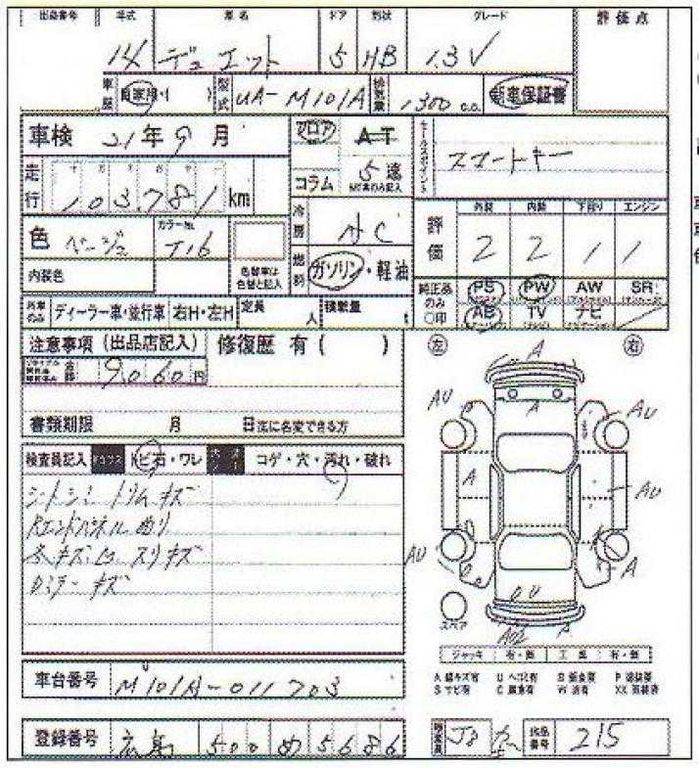 出品番号 年式 車名 ドア 形状 グレード 評価点
14 デュエット 5 HB 1.3V
車歴 自家用・( ) 型式 UA-M101A 排気量 1,300 c.c. 新車保証書
車検 21年 9月
フロア AT
コラム 5速
セールスポイント スマートキー
走行 103,781 km
色 ベージュ カラーNo. T16
内装色 色替車は色替と記入
冷房 AC
燃料 ガソリン・軽油
評価 外装 内装 下回り エンジン
2 2 1 1
純正品のみ○印 PS PW AW SR
AB TV ナビ
外車のみ ディーラー車・並行車 右H・左H 定員 人 積載量 t
注意事項(出品店記入) 修復歴 有( )
9,060円
書類期限 月 日迄に名変できる方
検査員記入 トビ石・ワレ コゲ・穴・汚れ・破れ
シートシミ トリムキズ
Rエンドパネル曲り
スリキズ
ミラーキズ
左 右
A
A
AU P AU
A AU
AU A
UU
スペア
ジャッキ 有・無 工具 有・無
A 線キズ有 U ヘコミ有 B 板金要 P 塗装要
S サビ有 C 腐食有 W 波有 XX 交換済
車台番号 M101A-011703
登録番号 広島 500 め 5686
検査員 出品番号 215